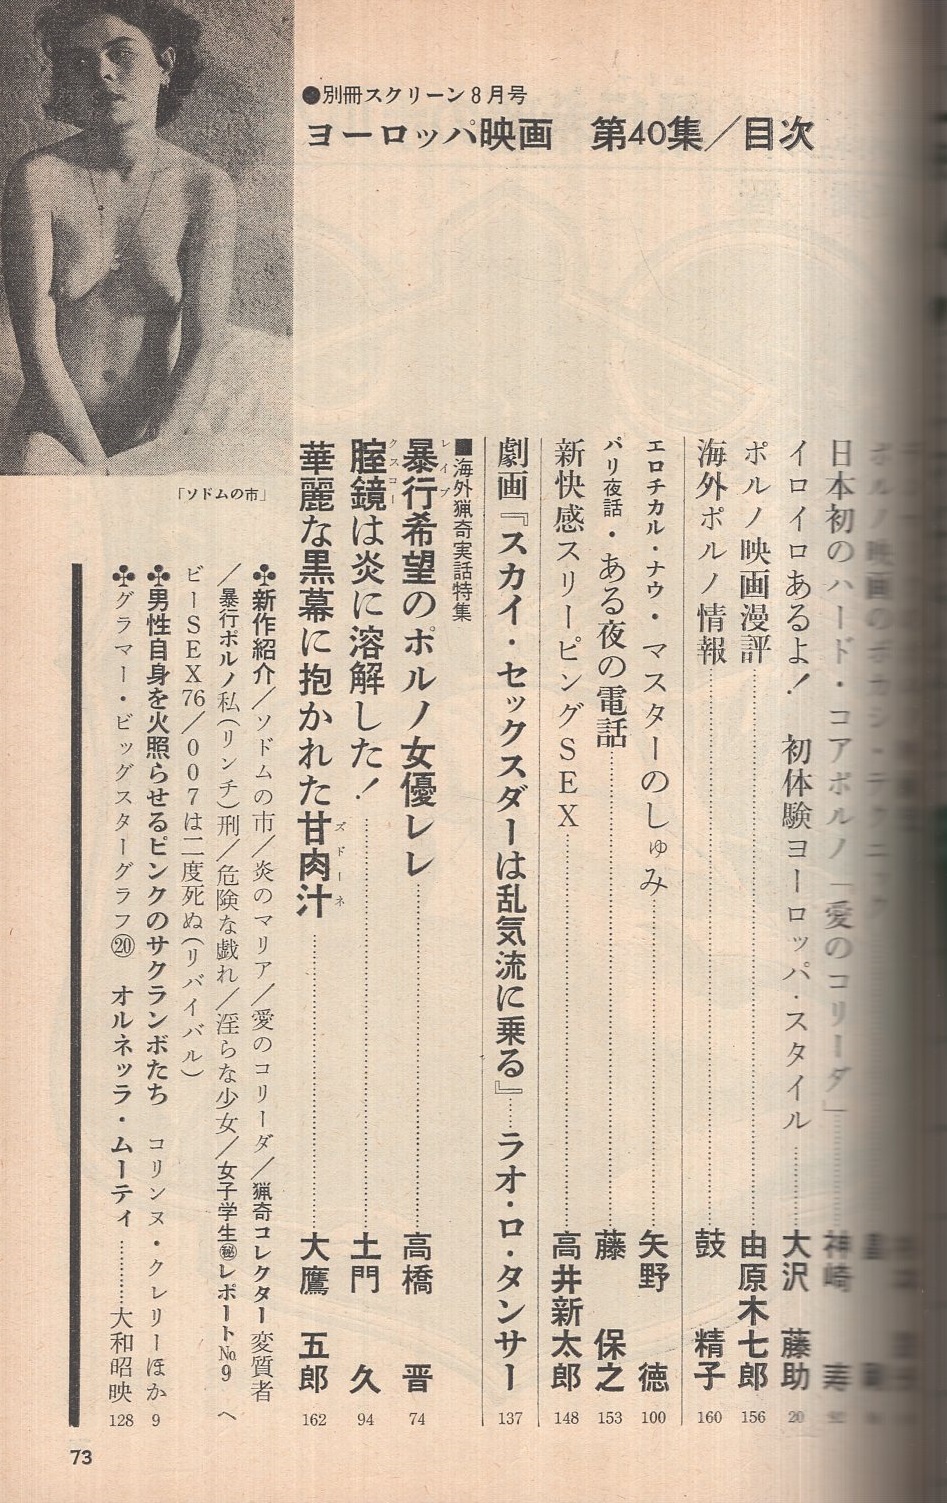 ●別冊スクリーン8月号
ヨーロッパ映画　第40集／目次
「ソドムの市」
日本初のハード・コアポルノ「愛のコリーダ」……神崎　寿
イロイロあるよ！　初体験ヨーロッパ・スタイル……大沢　藤助 20
ポルノ映画漫評……由原木七郎 156
海外ポルノ情報……鼓　精子 160
エロチカル・ナウ・マスターのしゅみ……矢野　徳 100
パリ夜話・ある夜の電話……藤　保之 153
新快感スリーピングSEX……高井新太郎 148
劇画『スカイ・セックスダーは乱気流に乗る』……ラオ・ロ・タンサー 137
■海外猟奇実話特集
暴行希望のポルノ女優レレ……高橋　晋 74
レイプ
膣鏡は炎に溶解した！……土門　久 94
クスコー
華麗な黒幕に抱かれた甘肉汁……大鷹　五郎 162
ズドーネ
✣新作紹介／ソドムの市／炎のマリア／愛のコリーダ／猟奇コレクター変質者
／暴行ポルノ私(リンチ)刑／危険な戯れ／淫らな少女／女子学生㊙レポート№9　へ
ビーSEX76／007は二度死ぬ(リバイバル)
✣男性自身を火照らせるピンクのサクランボたち　コリンヌ・クレリーほか 9
✣グラマー・ビッグスターグラフ⑳　オルネッラ・ムーティ……大和昭映 128
73